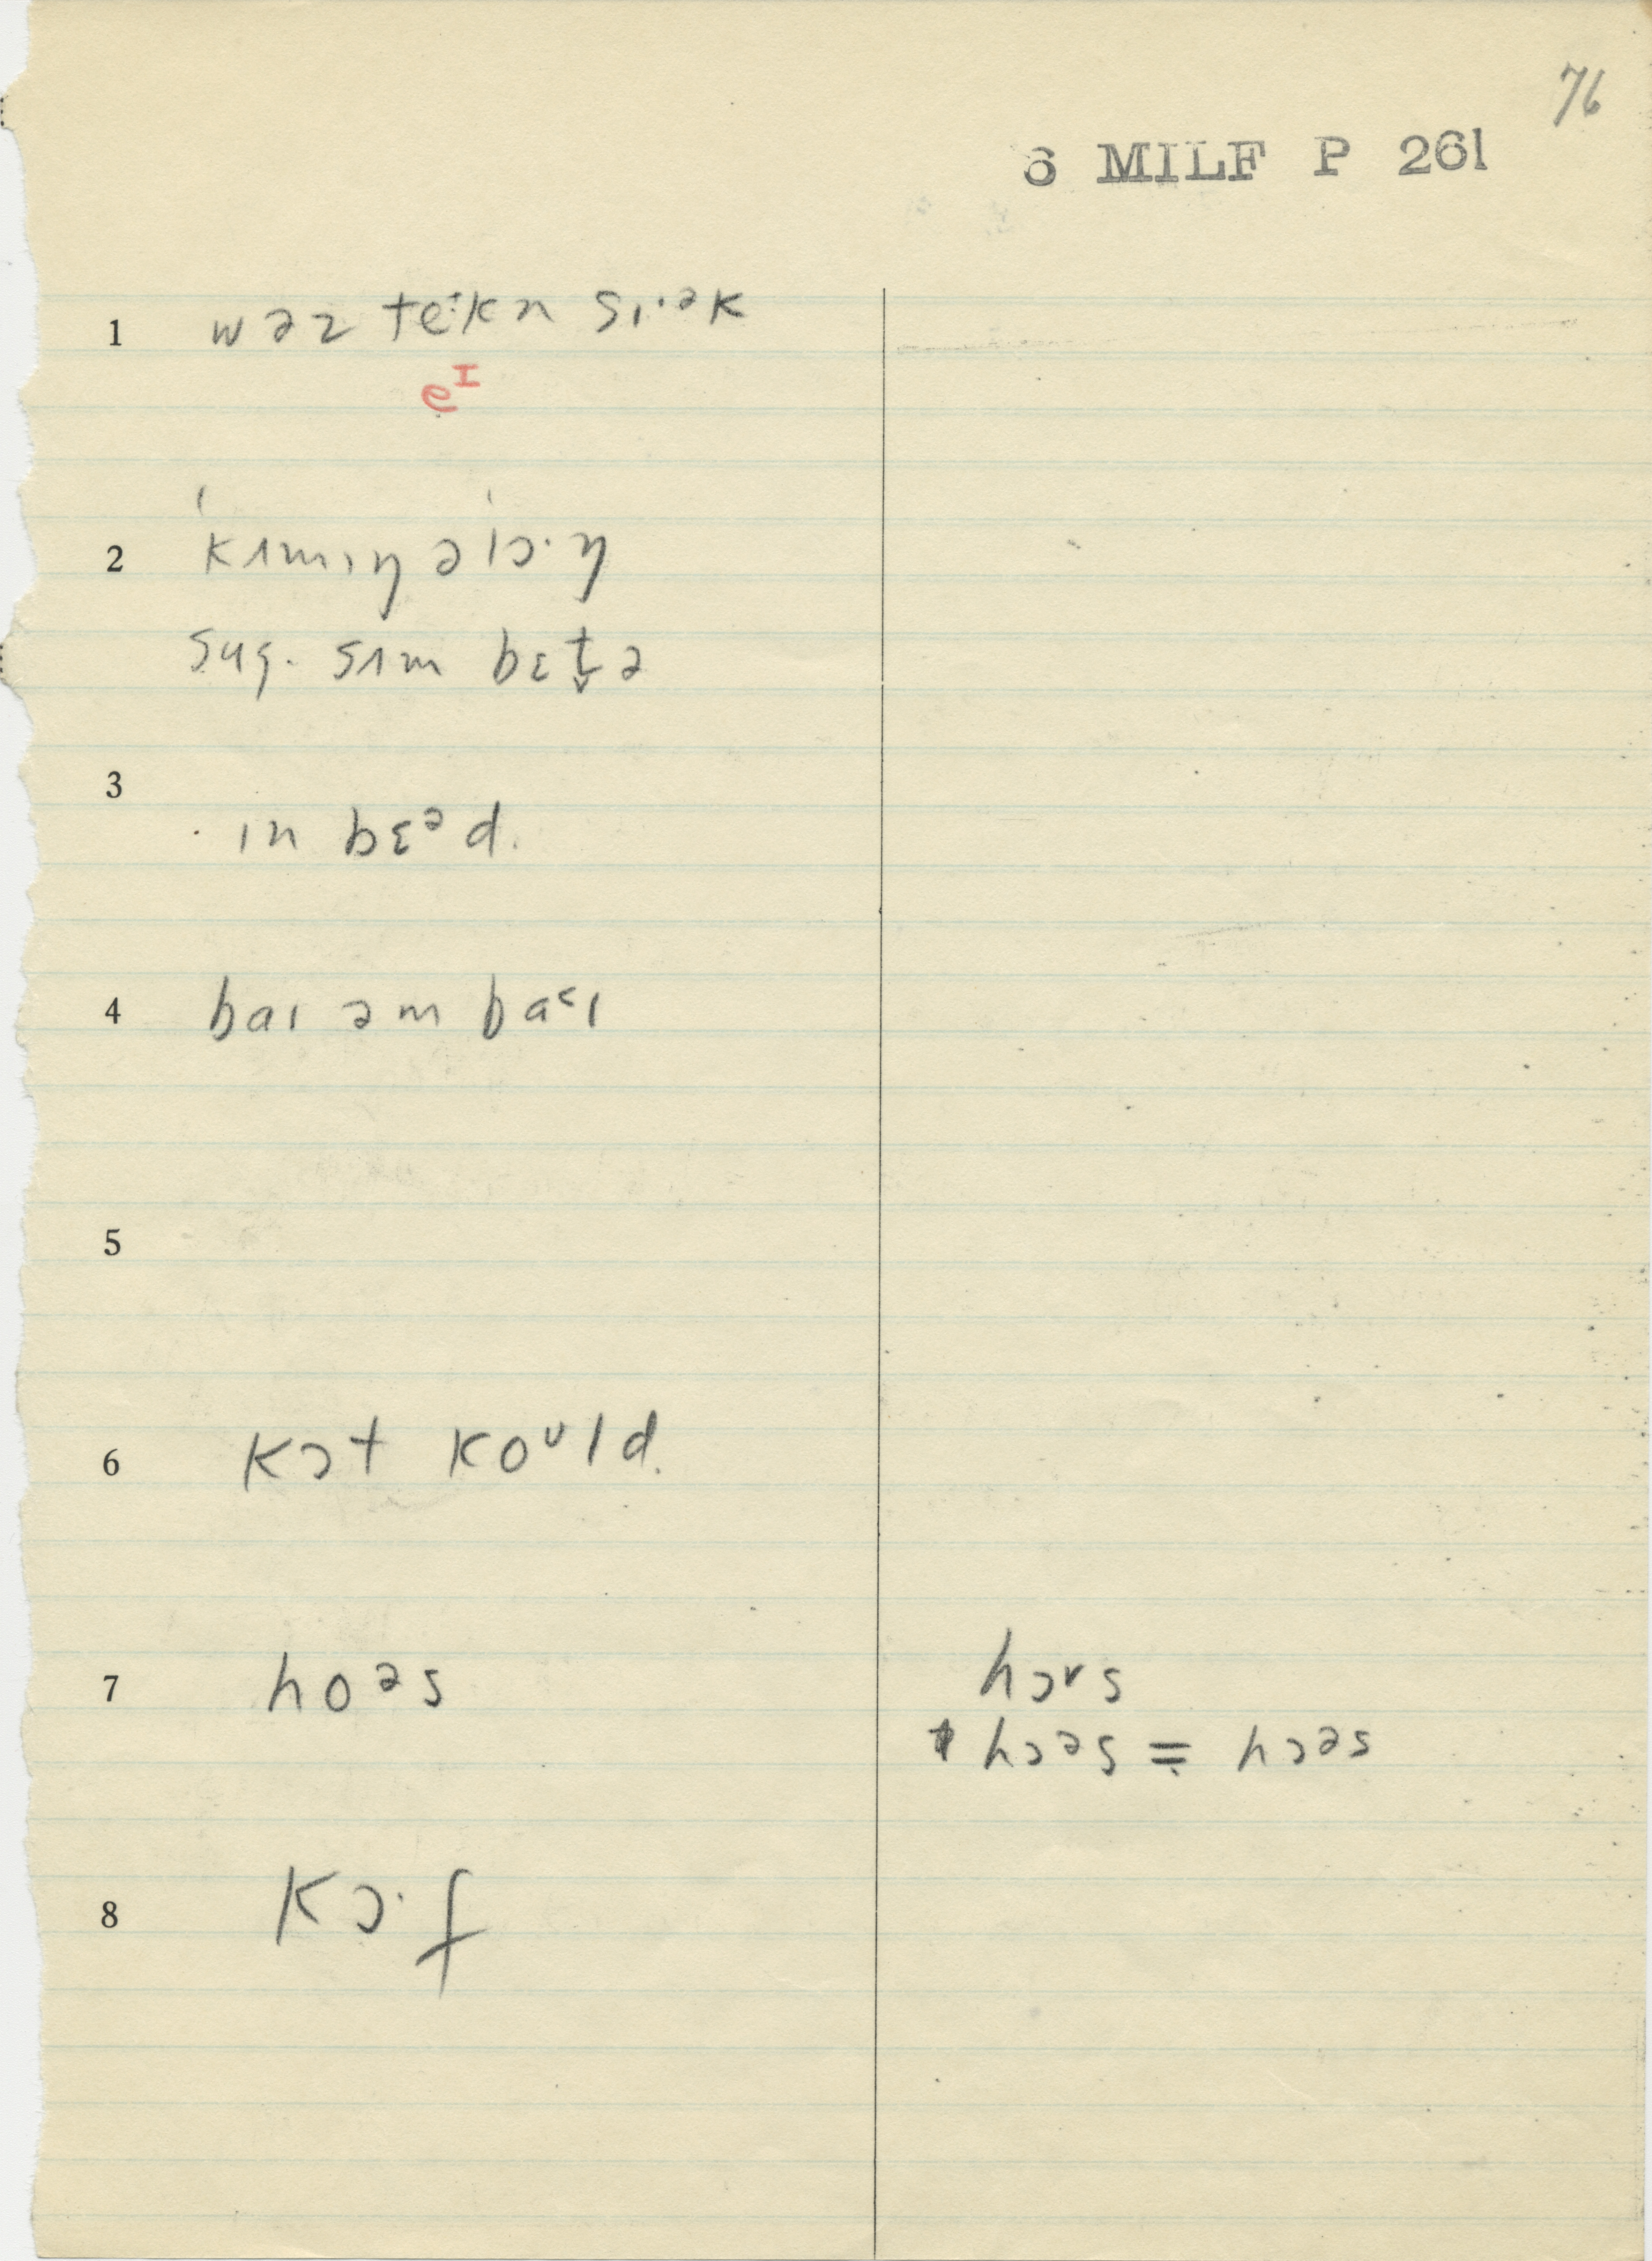 76
6 MILF P 261
1 wəz teɪ·kn sɪ·ək
eI
2 ˈkʌmɪŋ əˈlɔ·ŋ
sʌɪm bɛt̬ə
3
ɪn bɛᵊd.
4 baɪ əm baˤɪ
5
6 kɔt koᵘld.
7 hoəs hɔrs
hɔəs = hɔəs
8 kɔ·f